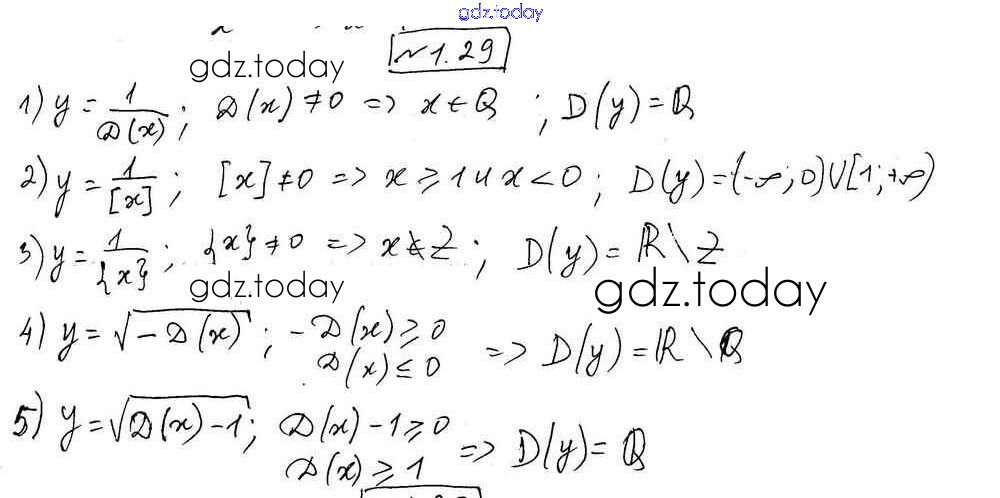 gdz.today
№1.29
gdz.today
1) y = 1/𝔇(x); 𝔇(x) ≠ 0 => x ∈ ℚ; D(y) = ℚ
2) y = 1/[x]; [x] ≠ 0 => x ⩾ 1 и x < 0; D(y) = (-∞; 0) U [1; +∞)
3) y = 1/{x}; {x} ≠ 0 => x ∉ Z; D(y) = ℝ \ Z
gdz.today gdz.today
4) y = √(-𝔇(x)); -𝔇(x) ⩾ 0
𝔇(x) ≤ 0 => D(y) = ℝ \ ℚ
5) y = √(𝔇(x) - 1); 𝔇(x) - 1 ⩾ 0
𝔇(x) ⩾ 1 => D(y) = ℚ